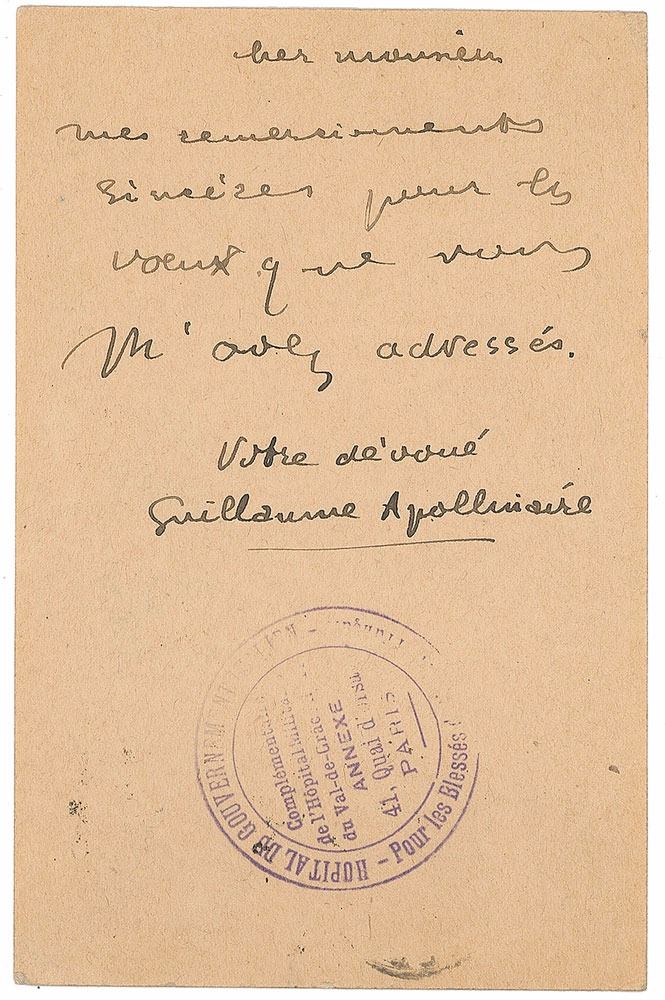 cher monsieur
mes remerciements
sincères pour les
vœux que vous
m'avez adressés.
Votre dévoué
Guillaume Apollinaire
HOPITAL DU GOUVERNEMENT ITALIEN - Pour les Blessés
Complémentaire
de l'Hôpital
du Val-de-Grâce
ANNEXE
41, Quai d'
PARIS